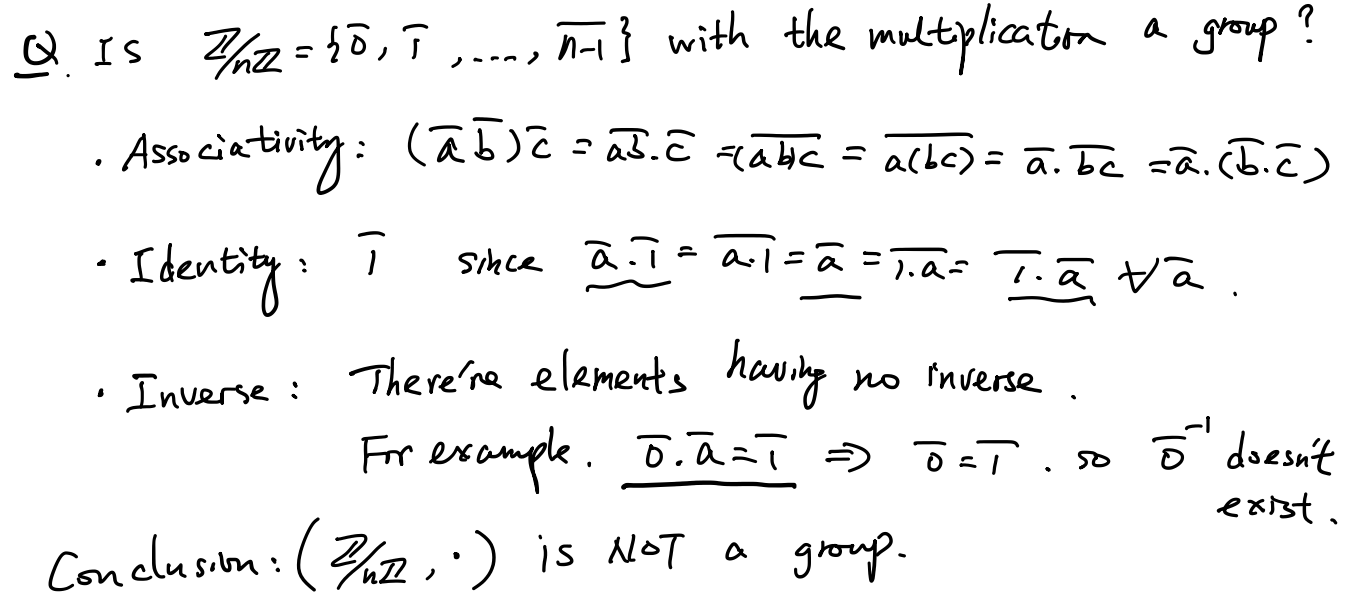 Q. Is ℤ/nℤ = {0̅, 1̅, ...., n-1̅} with the multiplication a group?
· Associativity: (a̅ b̅)c̅ = a̅b̅.c̅ = (̅a̅b̅)̅c̅ = a̅(̅b̅c̅)̅ = a̅. b̅c̅ = a̅.(b̅.c̅)
· Identity: 1̅ since a̅.1̅ = a̅.̅1̅ = a̅ = 1̅.̅a̅ = 1̅.a̅ ∀ a̅.
· Inverse: There're elements having no inverse.
For example. 0̅.a̅ = 1̅ ⇒ 0̅ = 1̅. so 0̅⁻¹ doesn't
exist.
Conclusion: (ℤ/nℤ, ·) is NOT a group.